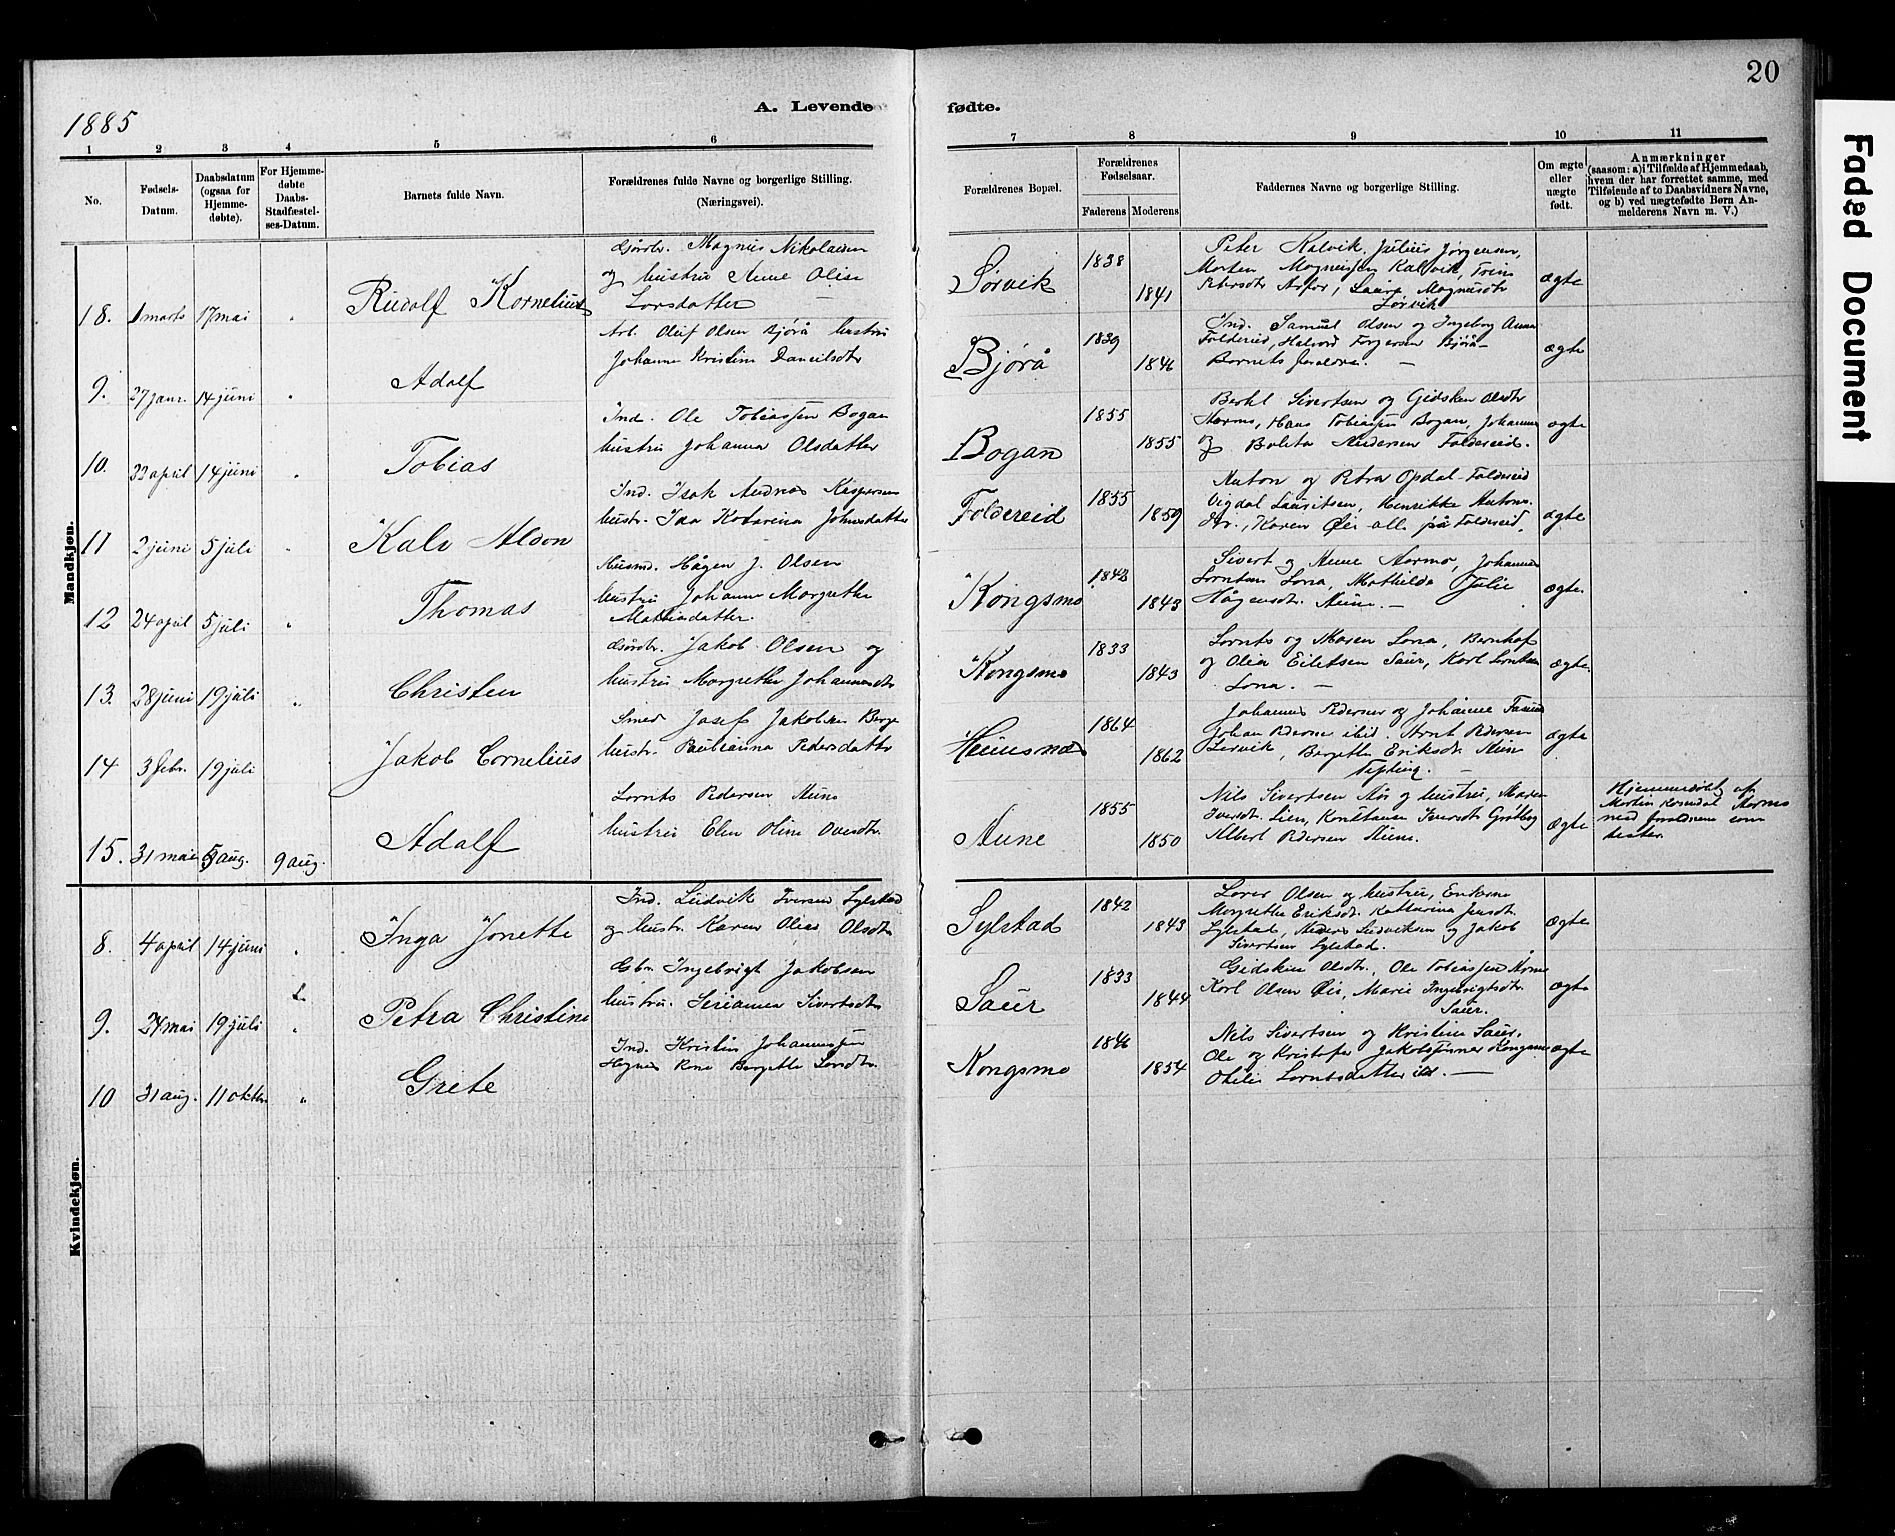 20
1885
A. Levende fødte.
1 2 3 4 5 6 7 8 9 10 11
No.
Fødsels-Datum.
Daabsdatum (ogsaa for Hjemmedøbte).
For Hjemmedøbte Daabs-Stadfæstelses-Datum.
Barnets fulde Navn.
Forældrenes fulde Navne og borgerlige Stilling. (Næringsvei).
Forældrenes Bopæl.
Forældrenes Fødselsaar.
Faderens Moderens
Faddernes Navne og borgerlige Stilling.
Om ægte eller uægte født.
Anmærkninger (saasom: a) i Tilfælde af Hjemmedaab, hvem der har forrettet samme, med Tilføiende af to Daabsvidners Navne, og b) ved uægtefødte Børn Anmelderens Navn m. V.)
Mandkjøn.
Gårdbr. Magnus Nikolaisen
og hustru Anne Olise
Lorsdatter
18. 1 marts 17 mai " Rudolf Kornelius
Sørvik 1838 1841
Peter Kalvik, Julius Jørgensen,
Morten Magnussen Kalvik, Trine
Petersdtr Arfor, Laura Magnusdtr
Sørvik
ægte
Arb. Oluf Olsen Bjørå hustru
Johanna Kristine Danielsdtr
9. 27 janr. 14 juni " Adolf
Bjørå 1839 1846
Ind. Samuel Olsen og Ingeborg Anna
Foldereid, Halvord Torgersen Bjørå
Barnets forældre. —
ægte
Ind. Ole Tobiassen Bogan
hustru Johanna Olsdatter
10. 22 april 14 juni " Tobias
Bogan 1855 1855
Bertil Sivertsen og Gidsken Olsdtr
Harmo, Hans Tobiassen Bogan, Johanna
og Andersen Foldereid.
ægte
Ind. Isak Andreas Kaspersen
hustr. Ida Katarina Johnsdatter
11 2 juni 5 juli " Kalv Aldon
Foldereid 1855 1859
Anton og Petra Opdal Foldereid
Vigdal Lauritsen, Henrikke Antons
dtr., Karen Øie alle på Foldereid.
ægte
Husmd. Hågen J. Olsen
hustru Johanna Margrethe
Mathiasdatter.
12 24 april 5 juli " Thomas
Kongsmo 1842 1843
Sivert og Anne Aarmo, Johannes
Lorntsen Lona, Mathilde Julie
Hågensdtr. Aune. —
ægte
Gårdbr. Jakob Olsen og
hustru Margrethe Johannesdtr
13. 28 juni 19 juli " Christen
Kongsmo 1833 1843
Lornts og Maren Lona, Bernhof
og Olea Eilertsen Saur, Karl Lorntsen
Lona. —
ægte
Smed Josef Jakobsen Berge
hustr. Pauliana Pedersdatter
14 3 febr. 19 juli Jakob Cornelius
Hunsnæs 1864 1862
Johannes Pedersen og Johanne
Johan Pedersen ibid. Arnt Pedersen
Lervik, Bergitte Eriksdtr.
ægte
Lornts Pedersen Aune
hustru Elen Oline Ovesdtr.
15. 31 mai 5 aug. 9 aug. Adolf
Aune 1855 1850
Nils Sivertsen Aas og hustru, Maren
Iversdtr. Lien, Konstanse Iversdtr Grøtberg
Albert Pedersen Aune.
ægte
Hjemmedøbt af
Martin Rosendal Harmo
med forældrene som
testes.
Kvindekjøn.
Ind. Ludvik Iversen Sylstad
og hustr. Karen Olea Olsdtr
8. 4 april 14 juni " Inga Jonette
Sylstad 1842 1843
Olsen og hustru, Enkerne
Margrethe Eriksdt. Kattarina Jensdt.
Sylstad, Anders Ludviksen og Jakob
Sivertsen Sylstad.
ægte
Gbr. Ingebrigt Jakobsen
hustru. Serianna Sivertsdtr
9. 24 mai 19 juli " Petra Christine
Saur 1833 1844
Gidsken Olsdtr., Ole Tobiassen Aarmo
Karl Olsen Øie, Marie Ingebrigtsdtr.
Saur.
ægte
Ind. Kristen Johannessen
Kone Bergitte Larsdtr.
10 31 aug. 11 oktbr " Grete
Kongsmo 1846 1854
Nils Sivertsen og Kristine Saur.
Ole og Kristofer Jakobsønner Kongsmo
Otelie Lorntsdatter ibd. —
ægte
Faded Document